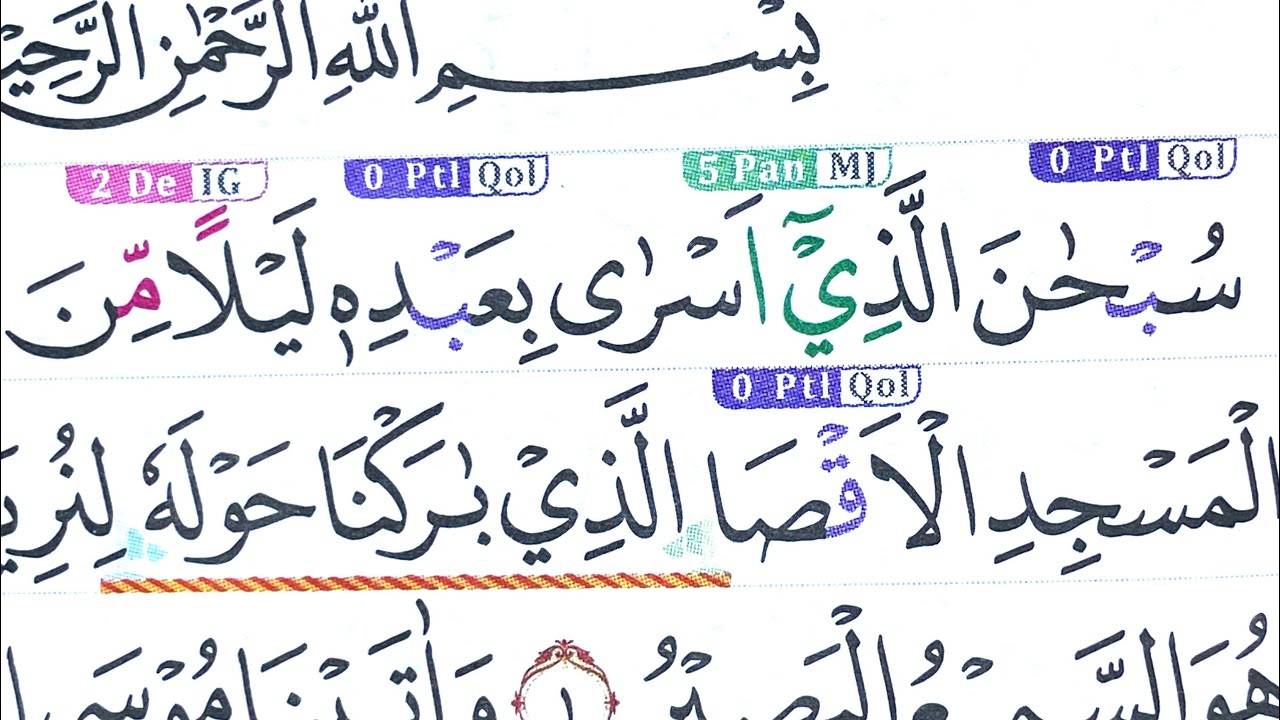 بِسْمِ اللّٰهِ الرَّحْمٰنِ
2 De IG 0 Ptl Qol 5 Pan MJ 0 Ptl Qol
سُبْحٰنَ الَّذِيْٓ اَسْرٰى بِعَبْدِهٖ لَيْلًا مِّنَ
0 Ptl Qol
الْمَسْجِدِ الْاَقْصَا الَّذِيْ بٰرَكْنَا حَوْلَهٗ
هُوَ السَّمِيْعُ الْبَصِيْرُ ١ وَاٰتَيْنَا مُوْسَى